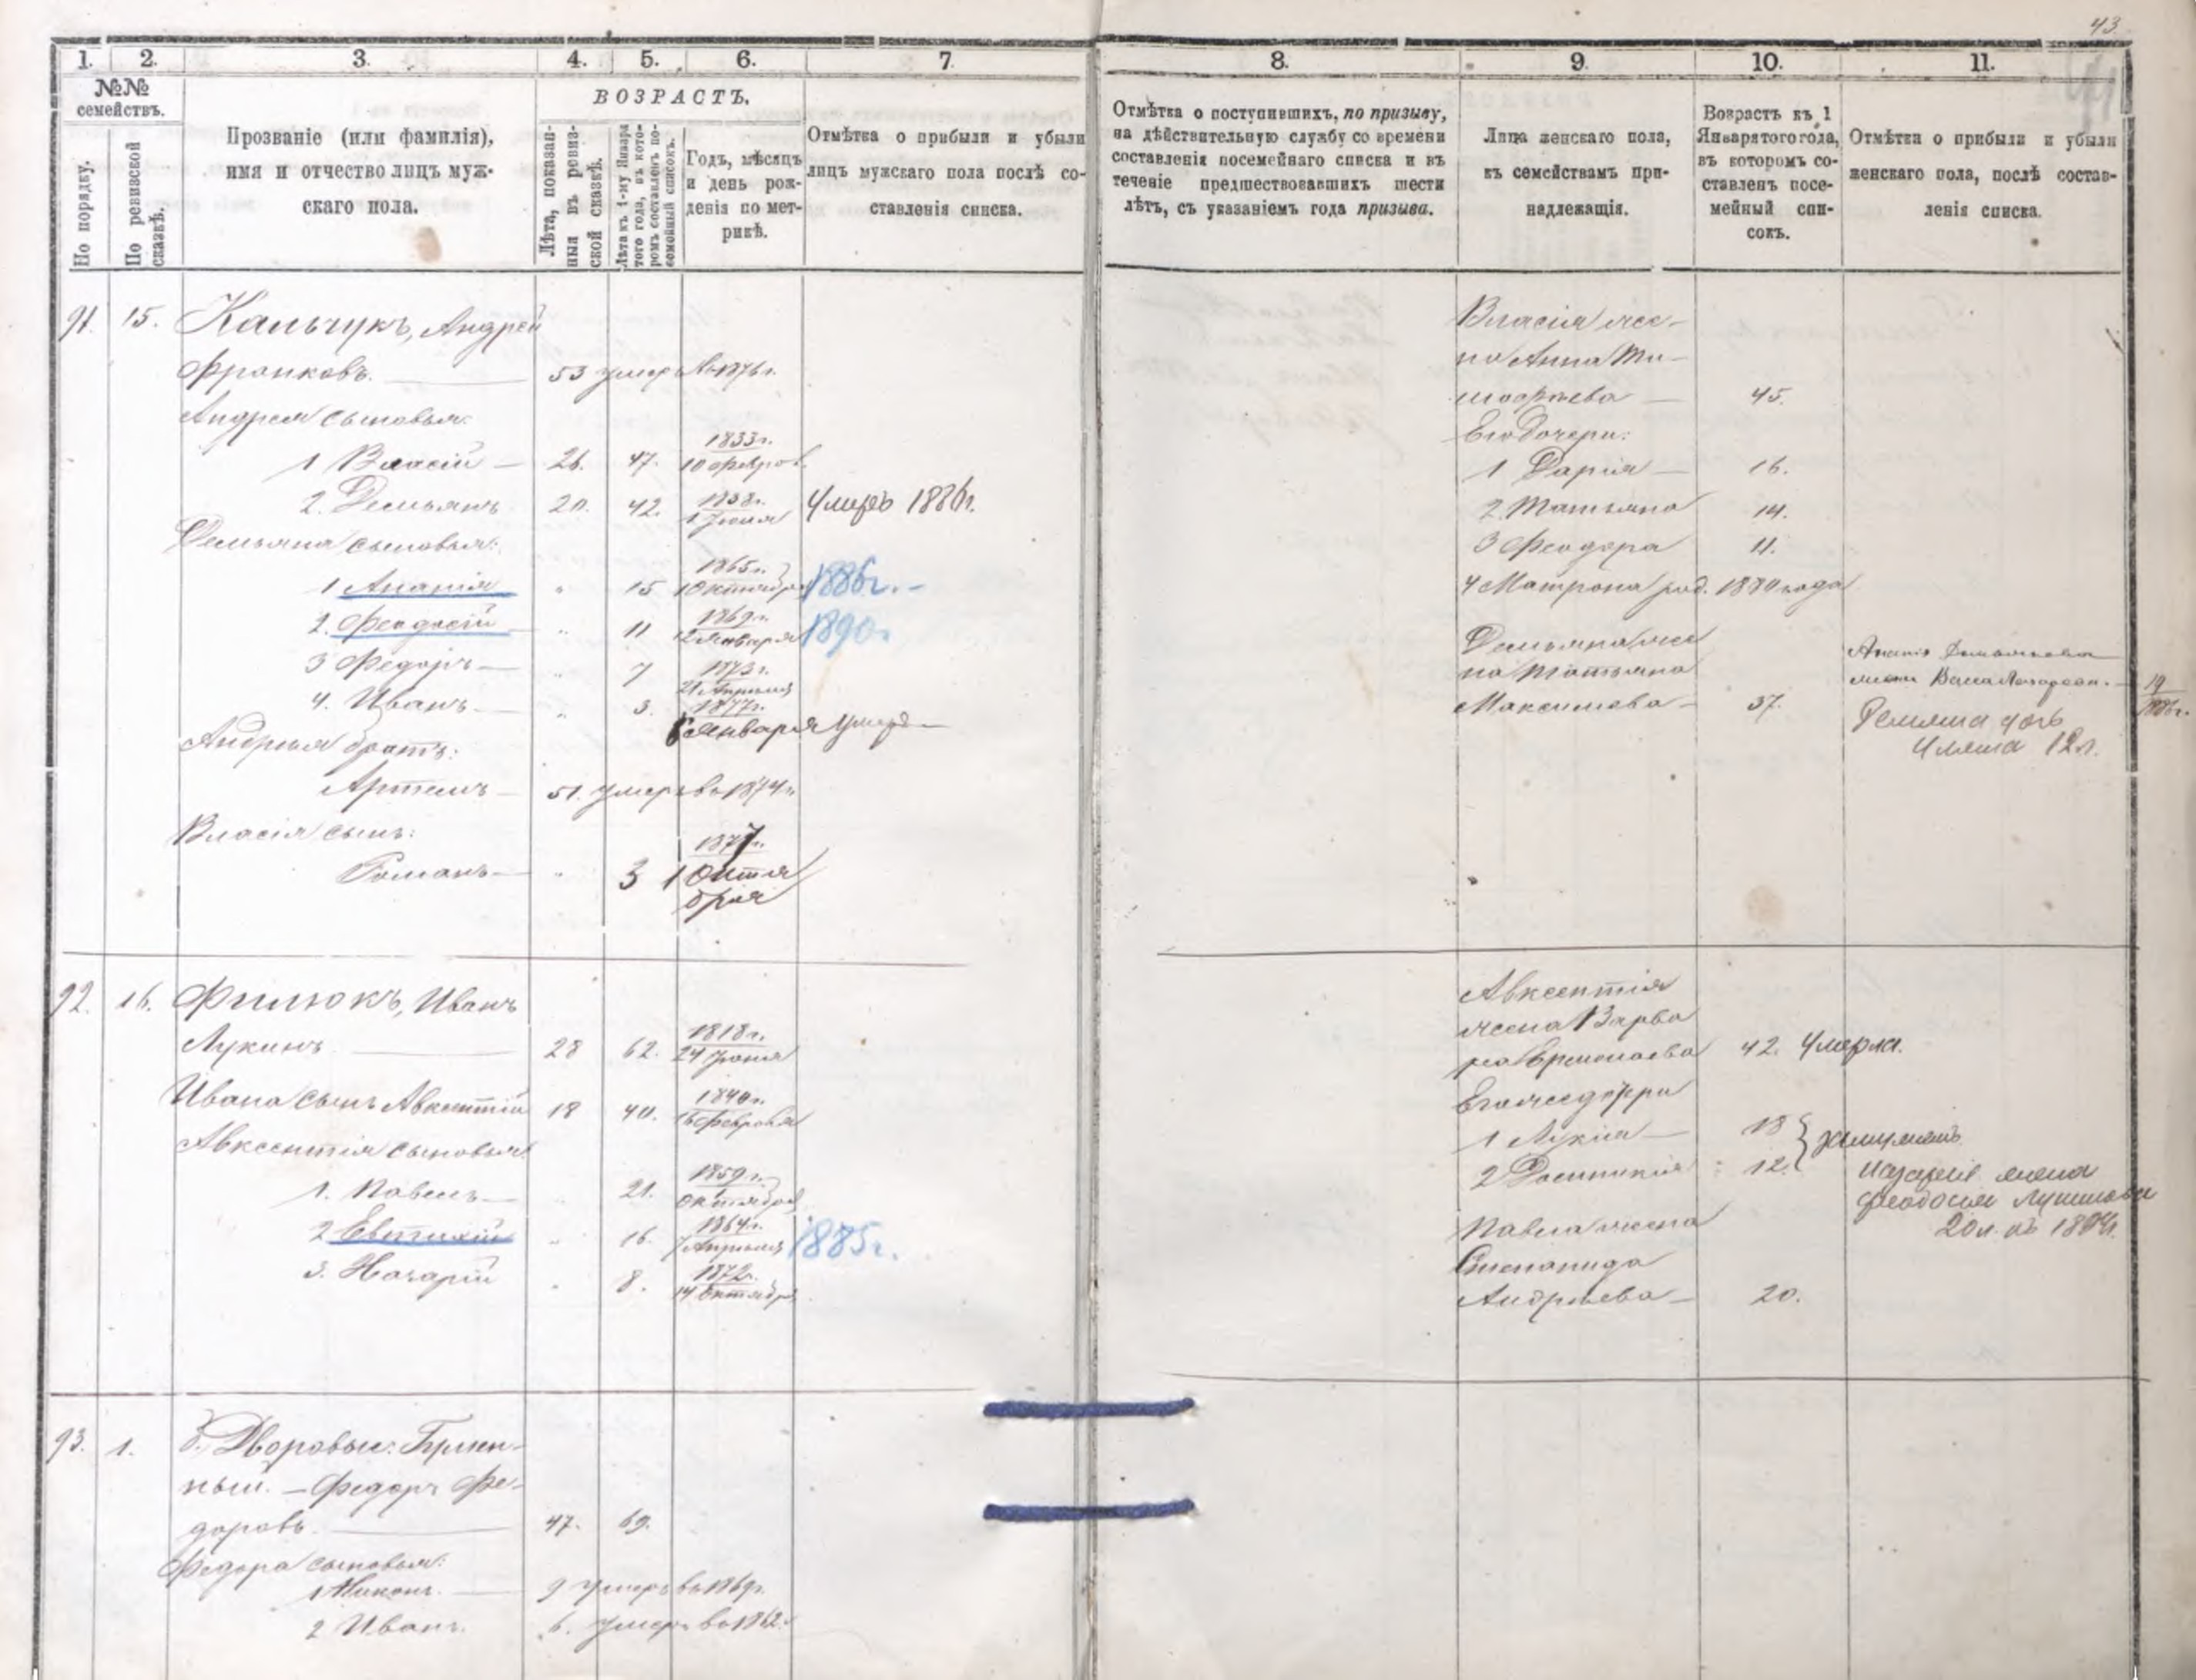 43
1. 2. 3. 4. 5. 6. 7.
№№ семействъ.
По порядку.
По ревизской сказкѣ.
Прозваніе (или фамилія),
имя и отчество лицъ муж-
скаго пола.
ВОЗРАСТЪ.
Лѣта, показан-
ныя въ ревиз-
ской сказкѣ.
Лѣта къ 1-му Января
того года, въ кото-
ромъ составленъ по-
семейный списокъ.
Годъ, мѣсяцъ
и день рож-
денія по мет-
рикѣ.
Отмѣтка о прибыли и убыли
лицъ мужскаго пола послѣ со-
ставленія списка.
91. 15. Кальчукъ, Андрей
Франковъ. 53 умеръ въ 1876 г.
Андрея сыновья:
1 Власій 26. 47. 1833 г. 10 Феврал.
2. Демьянъ 20. 42. 1838 г. 1 Іюля Умеръ 1886 г.
Демьяна сыновья:
1 Ананія " 15 1865 г. 1 Октября 1886 г.
2. Феодосій " 11 1869 г. 12 Января 1890
3 Федоръ " 7 1873 г. 21 Апрѣля
4. Иванъ " 3. 1877 г. 6 Января умеръ
Андрея братъ:
Артемъ 51. умеръ въ 1874 г.
Власія сынъ:
Романъ " 3 1877 г. 1 Октя
бря
92. 16. Филюкъ, Иванъ
Лукинъ 28 62. 1818 г. 24 Іюня
Ивана сынъ Авксентій 18 40. 1840 г. 16 Февраля
Авксентія сыновья
1. Павелъ " 21. 1859 г. 1 Октября
2 Евтихій " 16. 1864 г. 7 Апрѣля 1885 г.
3. Назарій " 8. 1872 г. 14 Октября
93. 1. б. Дворовые:
ный. — Федоръ Фе-
доровъ. 47. 69.
Федора сыновья:
1 Никонъ. 9 умеръ въ 1869 г.
2 Иванъ. 6. умеръ въ 1862 г.
8. 9. 10. 11.
Отмѣтка о поступившихъ, по призыву,
на дѣйствительную службу со времени
составленія посемейнаго списка и въ
теченіе предшествовавшихъ шести
лѣтъ, съ указаніемъ года призыва.
Лица женскаго пола,
къ семействамъ при-
надлежащія.
Возрастъ къ 1
Января того года,
въ которомъ со-
ставленъ посе-
мейный спи-
сокъ.
Отмѣтки о прибыли и убыли
женскаго пола, послѣ состав-
ленія списка.
Власія же-
на Анна Ти-
мофѣева 45.
Его дочери:
1 Дарія 16.
2 Татьяна 14.
3 Феодора 11.
4 Матрона род. 1880 года
Демьяна же
на Татьяна
Максимова 37.
Ананія Демьянова
жена
дочь
12 л.
Авксентія
жена Варва
ра Ермолаева 42. Умерла.
Его дочери
1 Лукія 18
2 Домникія 12.
замужемъ
Назарія жена
Феодосія
20 л. въ
Павла жена
Степанида
Андрѣева 20.